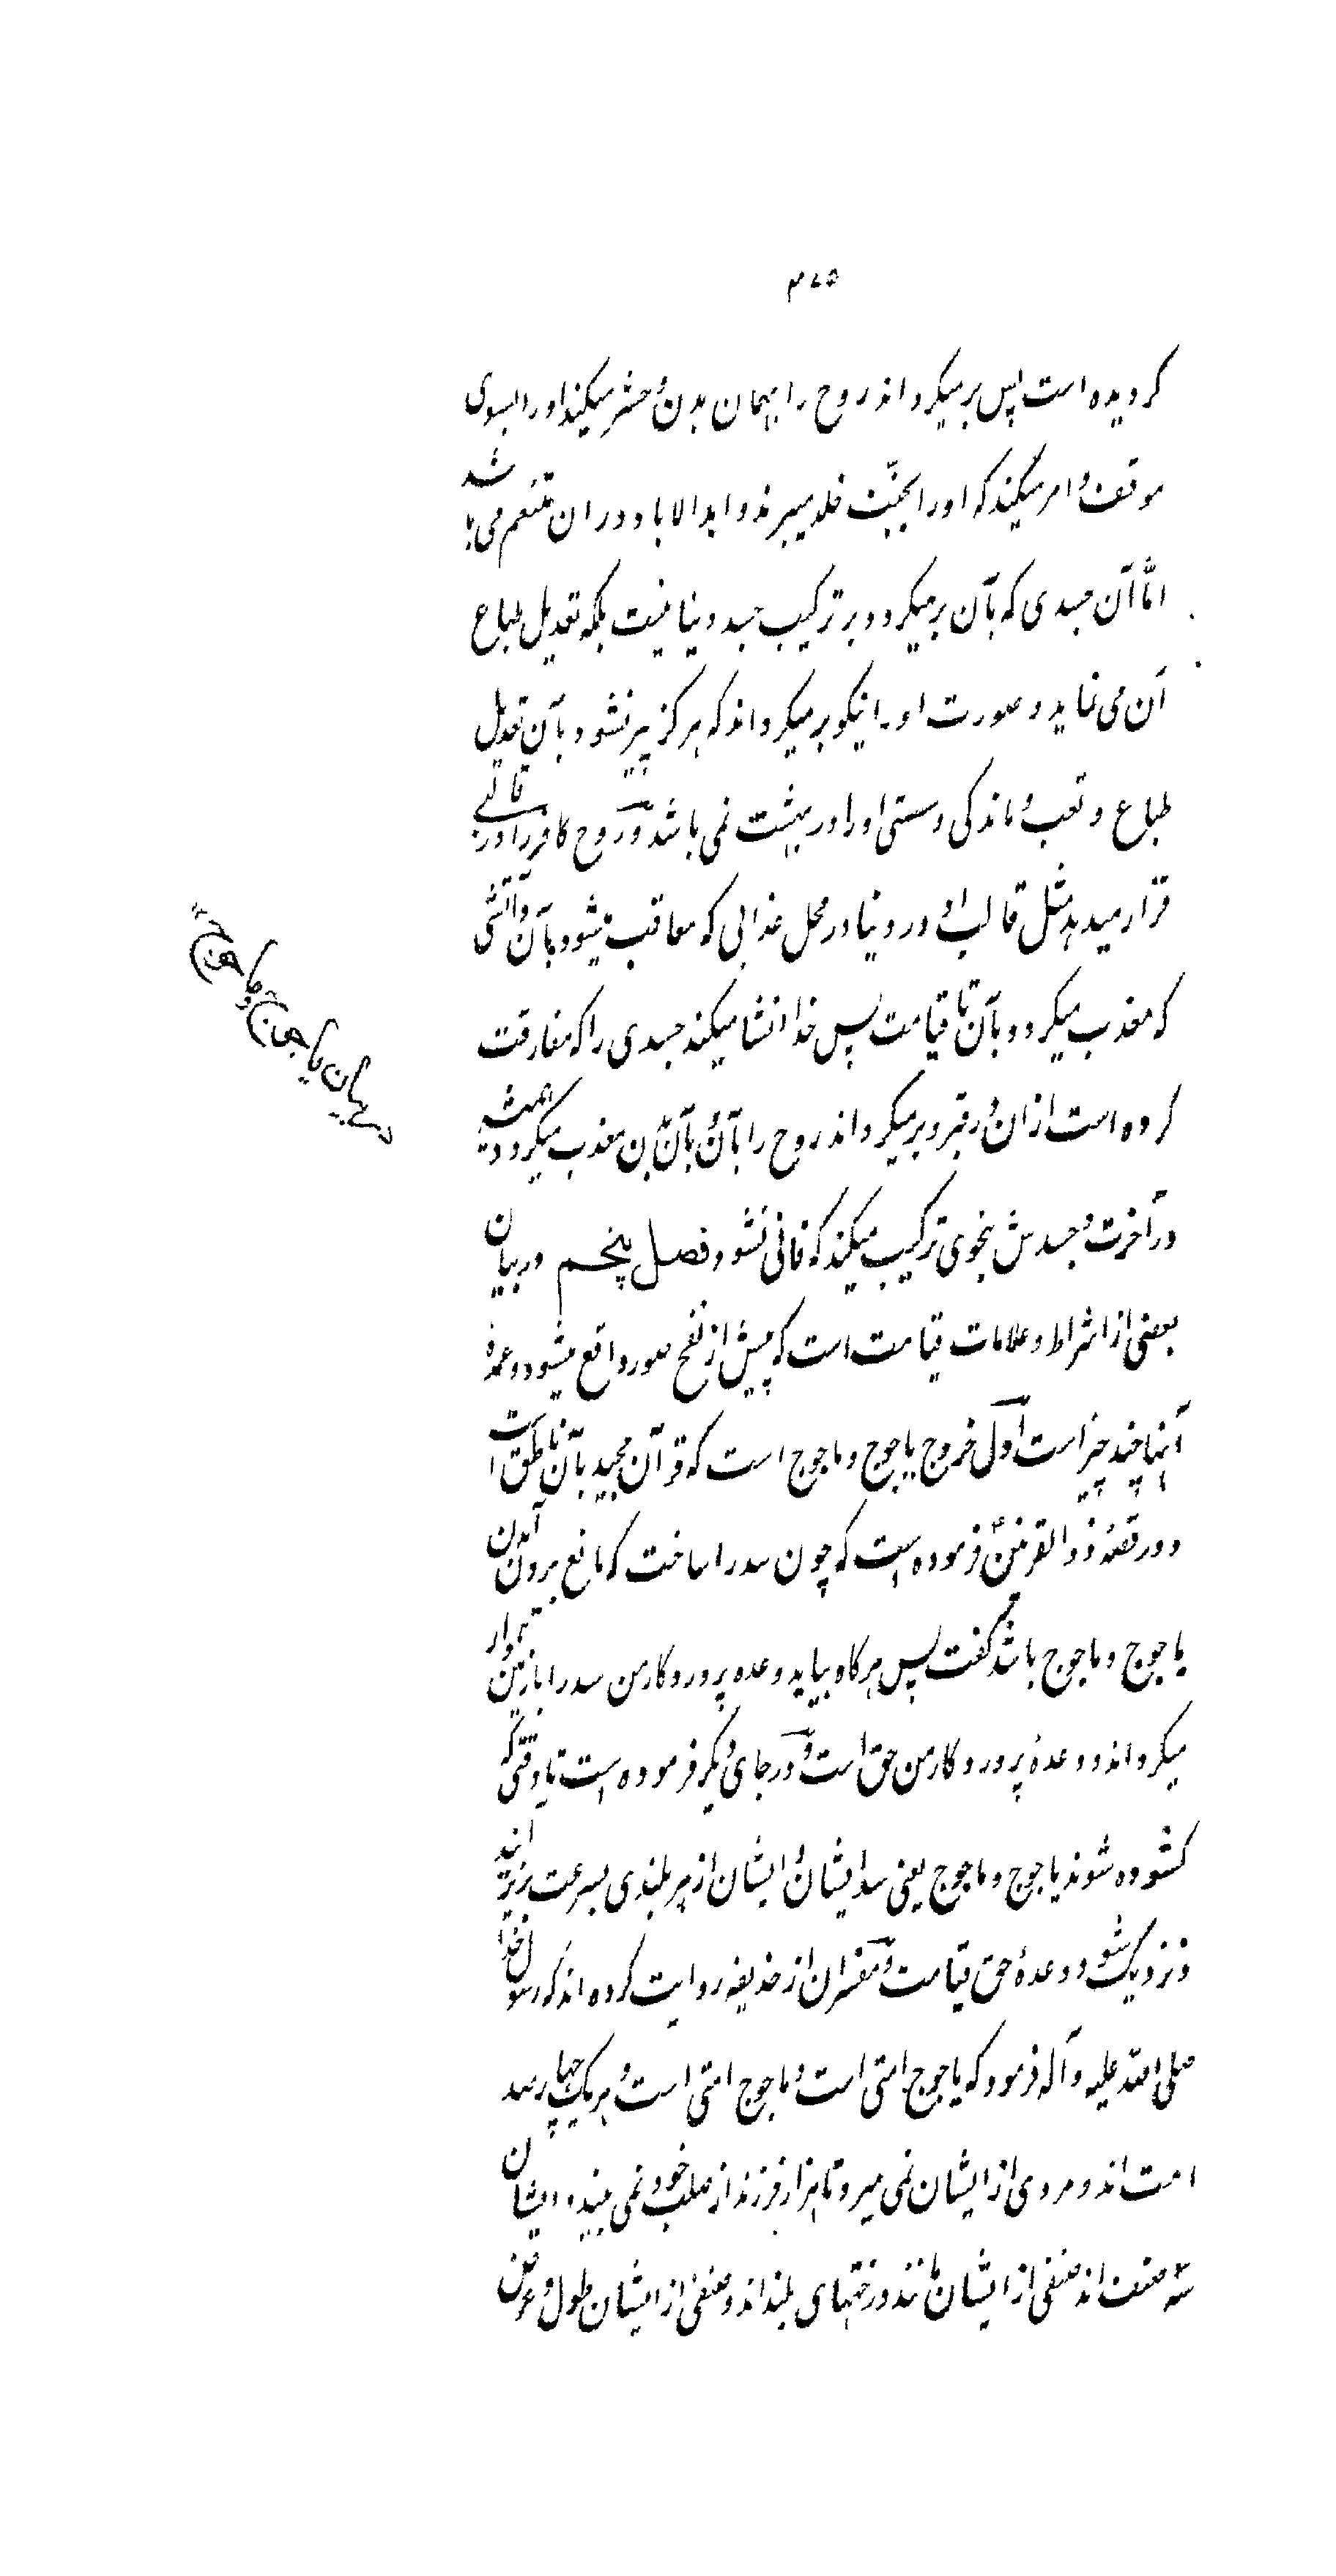 ۳۷۵
کردیده است پس برمیکرداند روح را بهمان بدن و حشر میکند او را بسوی
موقف و امر میکند که او را بجنّت خلد میبرند و ابدالاباد در ان متنعم می باشد
امّا آن جسدی که بآن برمیکردد بر ترکیب جسد دنیا نیست بلکه تعدیل طباع
آن می نماید و صورت او را نیکو برمیکرداند که هرکز پیر نشود بآن تعدیل
طباع و تعب و ماندکی و سستی او را در بهشت نمی باشد و روح کافر را در قالبے
قرار میدهد مثل قالب او در دنیا در محل عذابی که معاقب میشود بآن و آتشی
که معذب میکردد بآن تا قیامت پس خدا انشا میکند جسدی را که مفارقت
کرده است ازان در قبر و برمیکرداند روح را بآن و بآن بدن معذب میکردد همیشه
در آخرت و جسدش بنحوی ترکیب میکند که فانی نشود فصل پنجم در بیان
بعضی از اشراط و علامات قیامت است که پیش از نفخ صور واقع میشود و عمدهٔ
آنها چند چیز است اول خروج یاجوج و ماجوج است که قرآن مجید بآن ناطق است
و در قصهٔ ذوالقرنین فرموده است که چون سد را ساخت که مانع برون آمدن
یاجوج و ماجوج باشد کفت پس هرکاه بیاید وعده پروردکار من سد را با زمین هموار
میکرداند و وعدهٔ پروردکار من حق است و در جای دیکر فرموده است تا وقتی که
کشوده شوند یاجوج و ماجوج یعنی سد ایشان و ایشان از هر بلندی بسرعت بزیر آیند
و نزدیک شود وعدهٔ حق قیامت و مفسران از حذیفه روایت کرده اند که رسول خدا
صلی الله علیه و آله فرمود که یاجوج امتی است و ماجوج امتی است و هر یک چهارصد
امت اند و مردی از ایشان نمی میرد تا هزار فرزند از صلب خود نمی بیند و ایشان
سه صنف اند صنفی از ایشان مانند درختهای بلند اند و صنفی از ایشان طول و عرض
در بیان یاجوج و ماجوج